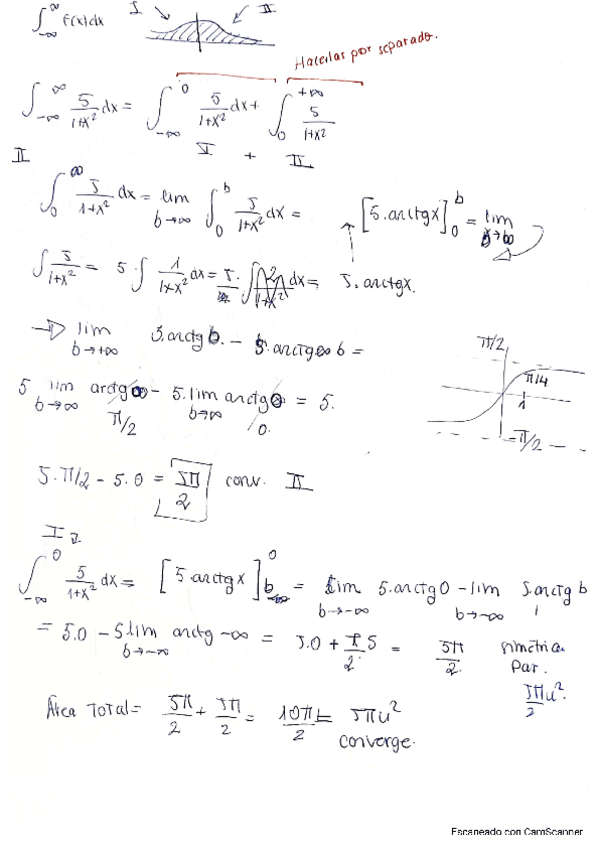 ∫_{-∞}^{∞} f(x)dx I II
Hacerlas por separado.
∫_{-∞}^{∞} 5/(1+x²) dx = ∫_{-∞}^{0} 5/(1+x²) dx + ∫_{0}^{+∞} 5/(1+x²)
I + II
II
∫_{0}^{∞} 5/(1+x²) dx = lim_{b→∞} ∫_{0}^{b} 5/(1+x²) dx = [5.arctgx]_{0}^{b} = lim_{b→∞}
∫ 5/(1+x²) = 5·∫ 1/(1+x²) dx = 5. dx = 5.arctgx.
→ lim_{b→+∞} 5.arctgb. - 5.arctg b =
π/2
π/4
1
-π/2
5 lim_{b→∞} arctg∞ - 5.lim_{b→∞} arctg0 = 5.
π/2 0.
5.π/2 - 5.0 = 5π/2 conv. II
I
∫_{-∞}^{0} 5/(1+x²) dx = [5.arctgx]_{b}^{0} = lim_{b→-∞} 5.arctg0 - lim_{b→-∞} 5.arctg b
= 5.0 - 5 lim_{b→-∞} arctg -∞ = 5.0 + π/2.5 = 5π/2 simétrica
Par.
5π/2 u².
Área Total = 5π/2 + 5π/2 = 10π/2 = 5πu²
converge.
Escaneado con CamScanner